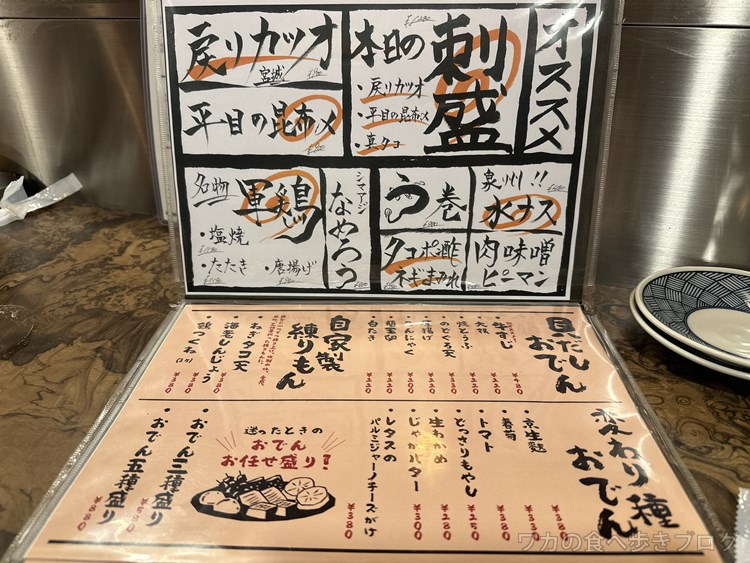 オススメ
本日の
刺盛
・戻りカツオ
・平目の昆布〆
・真タコ
戻りカツオ
宮城
平目の昆布〆
泉州!!
水ナス
う巻
シマアジ
なめろう
名物
軍鶏
・塩焼
・たたき
・唐揚げ
タコポン酢
ネギまみれ
肉味噌
ピーマン
貝だし
おでん
・牛すじ ¥480
・大根
・焼とうふ
・のどぐろ天
・こんにゃく
・白たき ¥220
自家製
練りもん
・ねぎタコ天 ¥380
・海老しんじょう ¥380
・鶏つくね ¥380
変わり種
おでん
・京生麩 ¥330
・春菊
・トマト ¥330
・どっさりもやし ¥250
・生わかめ ¥280
・じゃがバター ¥300
・レタスの
パルミジャーノチーズがけ ¥380
迷ったときの
おでん
お任せ盛り!
・おでん三種盛り ¥580
・おでん五種盛り ¥880
ワカの食べ歩きブログ